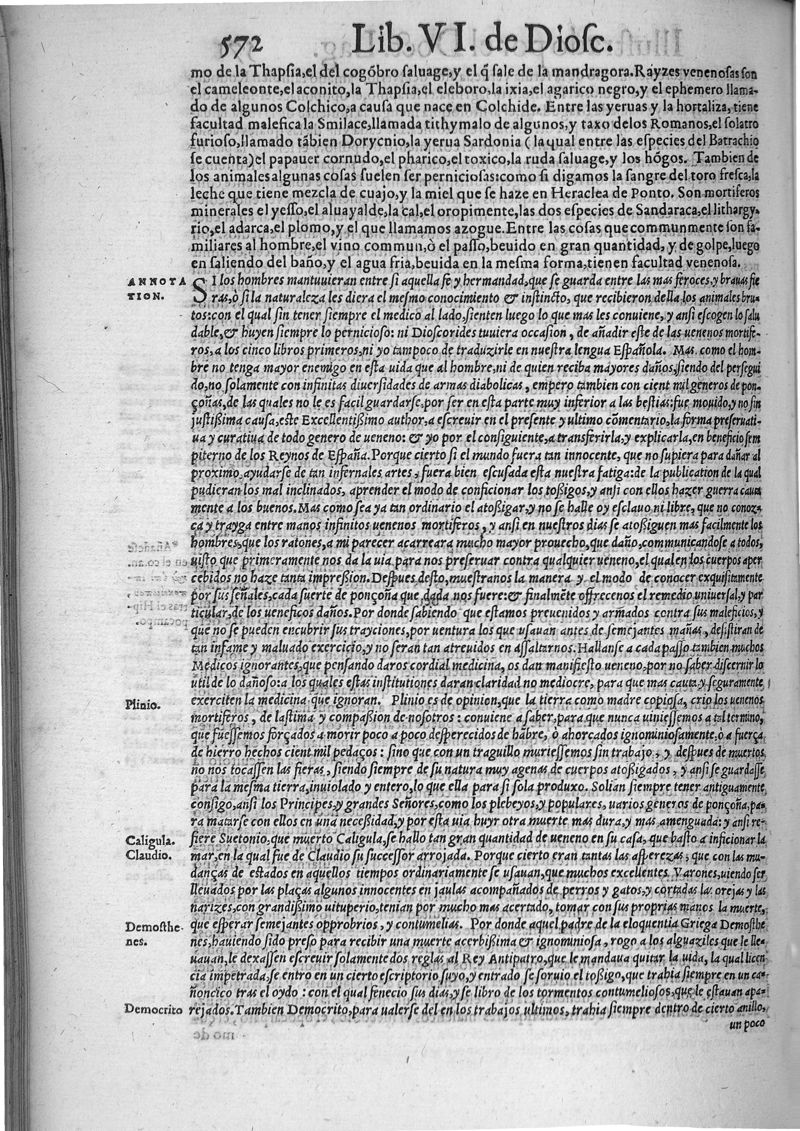 572 Lib. VI. de Diosc.
mo de la Thapsia,el del cogõbro saluage,y el q̃ sale de la mandragora.Rayzes venenosas son
el cameleonte,el aconito, la Thapsia,el eleboro,la ixia,el agarico negro,y el ephemero llama-
do de algunos Colchico,a causa que nace en Colchide. Entre las yeruas y la hortaliza, tiene
facultad malefica la Smilace,llamada tithymalo de algunos,y taxo delos Romanos,el solatro
furioso,llamado tãbien Dorycnio,la yerua Sardonia (la qual entre las especies del Batrachio
se cuenta)el papauer cornudo,el pharico,el toxico,la ruda saluage,y los hõgos. Tambien de
los animales algunas cosas suelen ser perniciosas:como si digamos la sangre del toro fresca,la
leche que tiene mezcla de cuajo,y la miel que se haze en Heraclea de Ponto. Son mortiferos
minerales el yesso,el aluayalde,la cal,el oropimente,las dos especies de Sandaraca,el lithargy-
rio,el adarca,el plomo,y el que llamamos azogue.Entre las cosas que communmente son fa-
miliares al hombre,el vino commun,ò el passo,beuido en gran quantidad,y de golpe,luego
en saliendo del baño,y el agua fria,beuida en la mesma forma,tienen facultad venenosa.
ANNOTA SI los hombres mantuuieran entre si aquella fe y hermandad,que se guarda entre las mas feroces,y brauas fie
TION. ras,ò si la naturaleza les diera el mesmo conocimiento & instincto, que recibieron della los animales bru-
tos:con el qual sin tener siempre el medico al lado,sienten luego lo que mas les conuiene,y ansi escogen lo salu
dable,& huyen siempre lo pernicioso: ni Dioscorides tuuiera occasion, de añadir este de las uenenos mortife-
ros,a los cinco libros primeros,ni yo tampoco de traduzirle en nuestra lengua Española. Mas como el hom-
bre no tenga mayor enemigo en esta uida que al hombre,ni de quien reciba mayores daños,siendo del persegui
do,no solamente con infinitas diuersidades de armas diabolicas, empero tambien con cient mil generos de pon-
çoñas,de las quales no le es facil guardarse,por ser en esta parte muy inferior a las bestias:fue mouido,y no sin
justissima causa,este Excellentissimo author,a escreuir en el presente y ultimo cõmentario,la forma preseruati-
ua y curatiua de todo genero de ueneno: & yo por el consiguiente,a transferirla,y explicarla,en beneficio sem
piterno de los Reynos de España.Porque cierto si el mundo fuera tan innocente, que no supiera para dañar al
proximo,ayudarse de tan infernales artes, fuera bien escusada esta nuestra fatiga:de la publication de la qual
pudieran los mal inclinados, aprender el modo de conficionar los tossigos,y ansi con ellos hazer guerra cauta
mente a los buenos.Mas como sea ya tan ordinario el atossigar,y no se halle oy esclauo ni libre, que no conoz-
ca y trayga entre manos infinitos uenenos mortiferos, y ansi en nuestros dias se atossiguen mas facilmente los
hombres,que los ratones,a mi parecer acarreara mucho mayor prouecho,que daño,communicandose a todos,
uisto que primeramente nos da la uia para nos preseruar contra qualquier ueneno,el qual en los cuerpos aper
cebidos no haze tanta impression.Despues desto,muestranos la manera y el modo de conocer exquisitamente
por sus señales,cada suerte de ponçoña que dada nos fuere:& finalmẽte offrecenos el remedio uniuersal,y par
ticular,de los ueneficos daños. Por donde sabiendo que estamos preuenidos y armados contra sus maleficios,y
que no se pueden encubrir sus trayciones,por uentura los que usauan antes de semejantes mañas, desistiran de
tan infame y maluado exercicio,y no seran tan atreuidos en assaltarnos. Hallanse a cada passo tambien muchos
Medicos ignorantes,que pensando daros cordial medicina, os dan manifiesto ueneno,por no saber discernir lo
util de lo dañoso:a los quales estas institutiones daran claridad no mediocre, para que mas cauta y seguramente
exerciten la medicina que ignoran. Plinio es de opinion,que la tierra como madre copiosa, crio los uenenos
Plinio. mortiferos, de lastima y compassion de nosotros: conuiene a saber,para que nunca uiniessemos a tal termino,
que fuessemos forçados a morir poco a poco desperecidos de hãbre, ò ahorcados ignominiosamente,ò a fuerça
de hierro hechos cient mil pedaços: sino que con un traguillo muriessemos sin trabajo, y despues de muertos
no nos tocassen las fieras, siendo siempre de su natura muy agenas de cuerpos atossigados, y ansi se guardasse
para la mesma tierra,inuiolado y entero,lo que ella para si sola produxo. Solian siempre tener antiguamente
consigo,ansi los Principes,y grandes Señores,como los plebeyos,y populares, uarios generos de ponçoña,pa-
ra matarse con ellos en una necessidad,y por esta uia huyr otra muerte mas dura,y mas amenguada: y ansi re-
Caligula. fiere Suetonio,que muerto Caligula,se hallo tan gran quantidad de ueneno en su casa, que basto a inficionar la
Claudio. mar,en la qual fue de Claudio su successor arrojada. Porque cierto eran tantas las asperezas, que con las mu-
danças de estados en aquellos tiempos ordinariamente se usauan,que muchos excellentes Varones,uiendo ser
lleuados por las plaças algunos innocentes en jaulas acompañados de perros y gatos,y cortadas las orejas y las
narizes,con grandissimo uituperio,tenian por mucho mas acertado, tomar con sus proprias manos la muerte,
Demosthe- que esperar semejantes opprobrios, y contumelias. Por donde aquel padre de la eloquentia Griega Demosthe
nes. nes,hauiendo sido preso para recibir una muerte acerbissima & ignominiosa, rogo a los alguaziles que le lle-
uauan,le dexassen escreuir solamente dos reglas al Rey Antipatro,que le mandaua quitar la uida, la qual licen
cia impetrada,se entro en un cierto escriptorio suyo,y entrado se soruio el tossigo,que trahia siempre en un ca-
ñoncico tras el oydo : con el qual fenecio sus dias,y se libro de los tormentos contumeliosos,que le estauan apa-
Democrito rejados.Tambien Democrito,para ualerse del en los trabajos ultimos, trahia siempre dentro de cierto anillo,
un poco